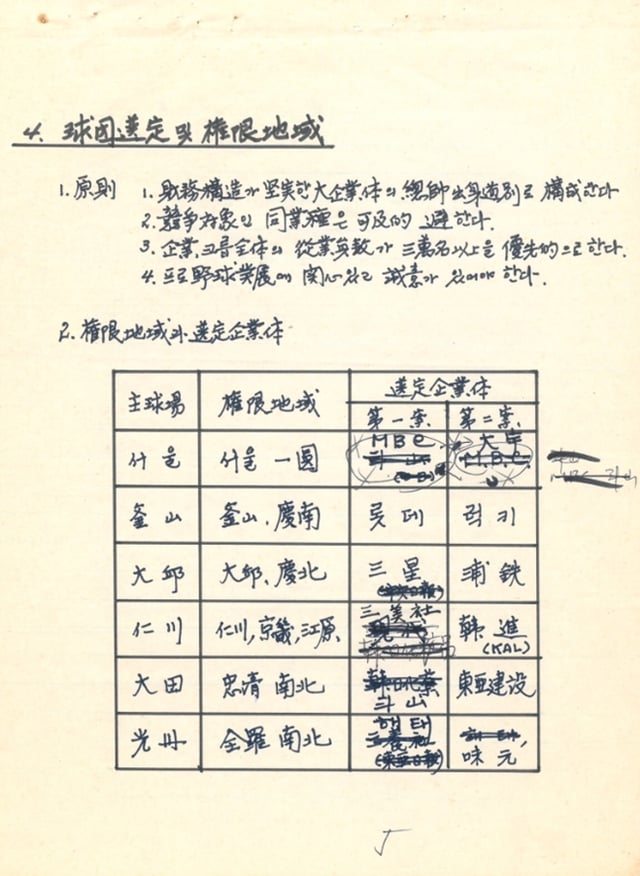 4. 球団選定 및 権限地域
1. 原則 1. 財務構造가 堅実한 大企業体의 總師出身道別로 構成한다
2. 競争対象인 同業種은 可及的 避한다.
3. 企業그룹全体의 從業員数가 三萬名以上을 優先的으로 한다.
4. 프로野球発展에 関心있고 誠意가 있어야 한다.
2. 権限地域과 選定企業体
主球場 権限地域 選定企業体
第一案 第二案
서울 서울 一圓 MBC, 大宇
M.B.C.
釜山 釜山, 慶南 롯데 럭키
大邱 大邱, 慶北 三星 浦鉄
(中央日報)
仁川 仁川, 京畿, 江原 三美社 韓進
現代 (KAL)
大田 忠清 南北 韓国化薬 東亜建設
斗山
光州 全羅 南北 해태 해태,
三養社 味元
(東亜日報)
5